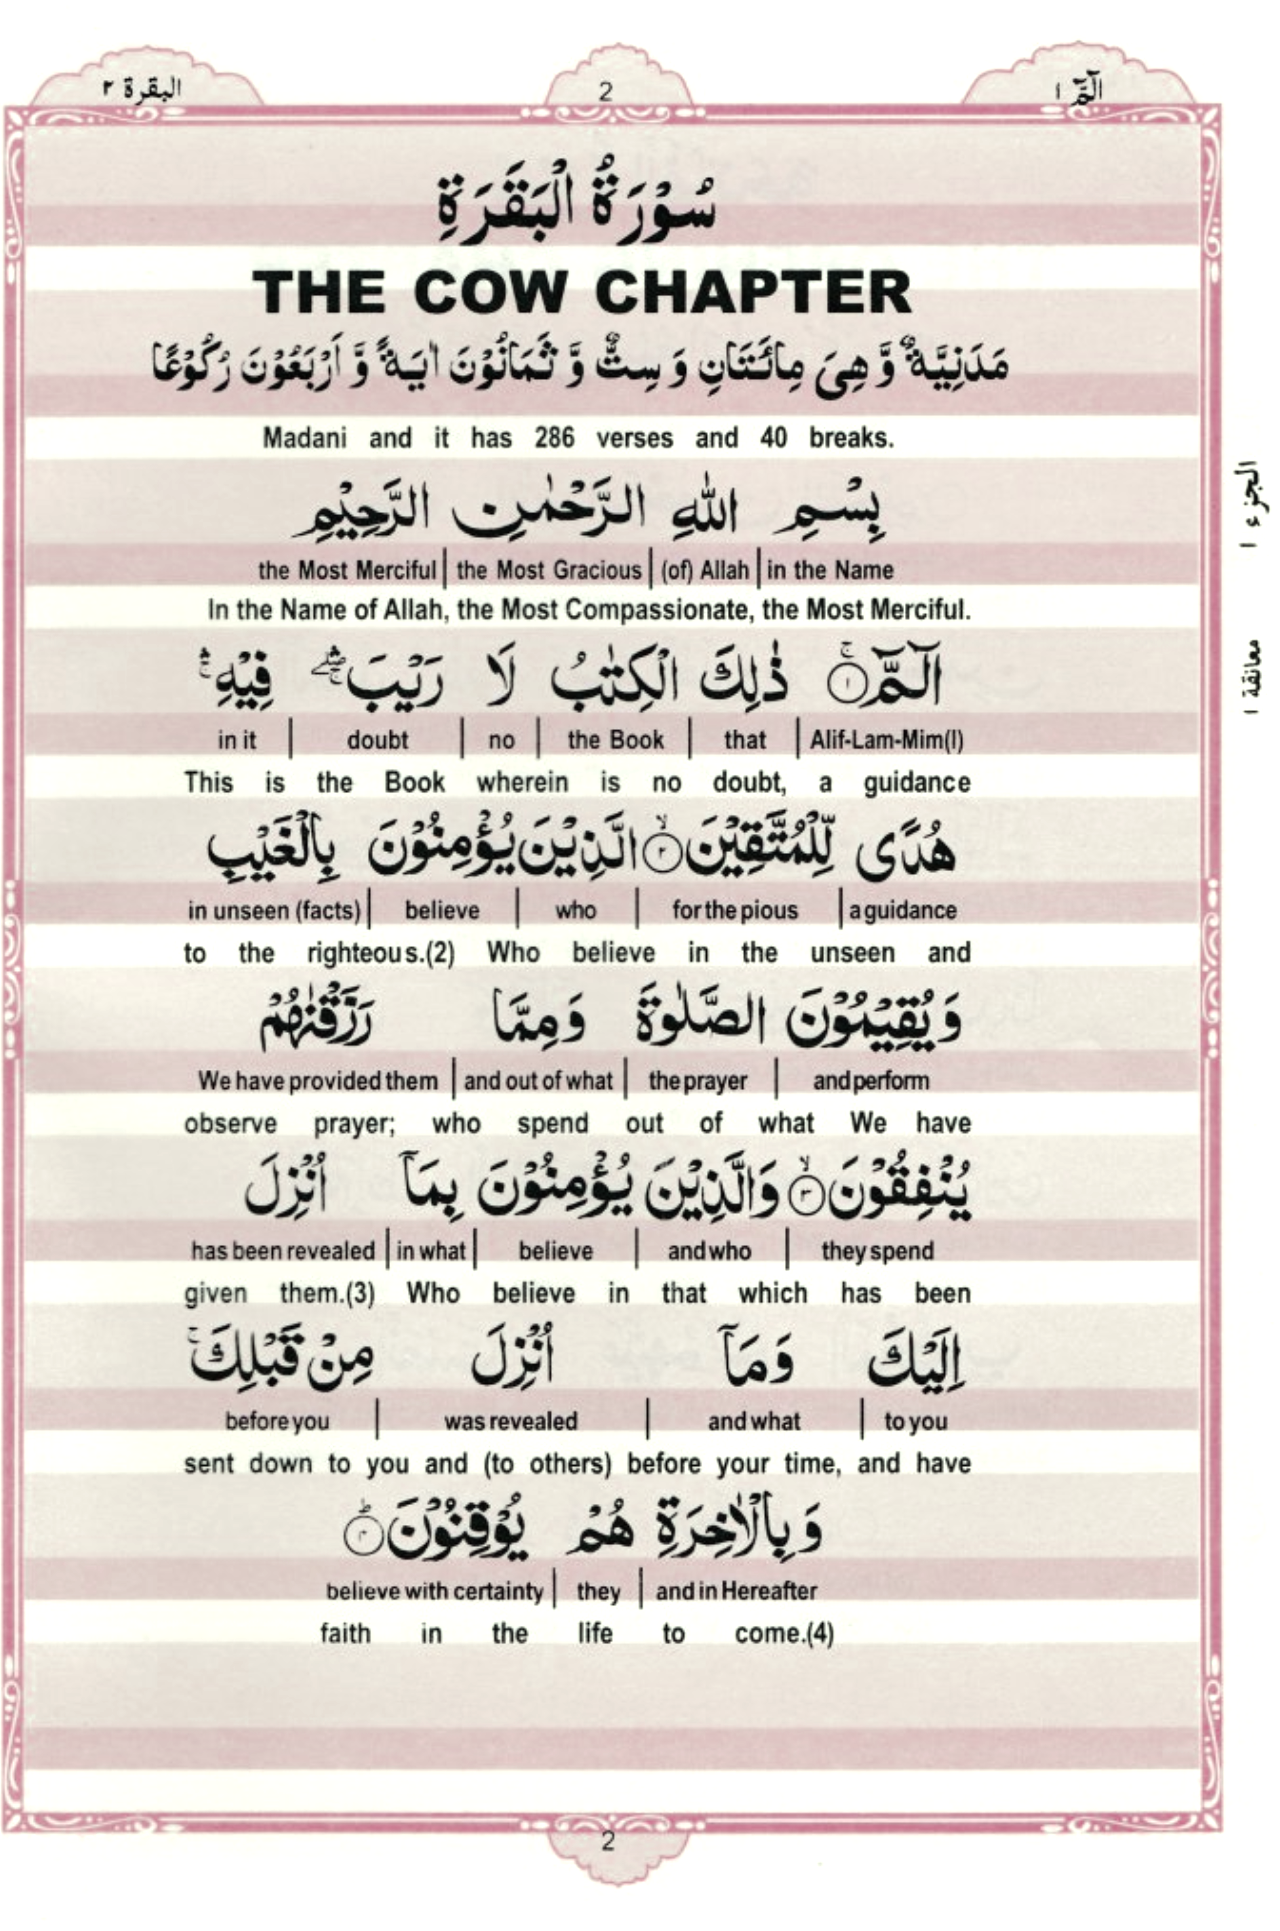 البقرة ٢
2
الٓمّٓ ١
سُوْرَةُ الْبَقَرَةِ
THE COW CHAPTER
مَدَنِيَّةٌ وَّ هِىَ مِائَتَانِ وَ سِتٌّ وَّ ثَمَانُوْنَ اٰيَةً وَّ اَرْبَعُوْنَ رُكُوْعًا
Madani and it has 286 verses and 40 breaks.
بِسْمِ اللّٰهِ الرَّحْمٰنِ الرَّحِيْمِ
the Most Merciful | the Most Gracious | (of) Allah | in the Name
In the Name of Allah, the Most Compassionate, the Most Merciful.
الٓمّٓ ۚ ۝١ ذٰلِكَ الْكِتٰبُ لَا رَيْبَ ۛۖ فِيْهِ ۛۚ
in it | doubt | no | the Book | that | Alif-Lam-Mim(I)
This is the Book wherein is no doubt, a guidance
هُدًى لِّلْمُتَّقِيْنَ ۙ ۝٢ الَّذِيْنَ يُؤْمِنُوْنَ بِالْغَيْبِ
in unseen (facts) | believe | who | for the pious | a guidance
to the righteous.(2) Who believe in the unseen and
وَ يُقِيْمُوْنَ الصَّلٰوةَ وَ مِمَّا رَزَقْنٰهُمْ
We have provided them | and out of what | the prayer | and perform
observe prayer; who spend out of what We have
يُنْفِقُوْنَ ۙ ۝٣ وَالَّذِيْنَ يُؤْمِنُوْنَ بِمَآ اُنْزِلَ
has been revealed | in what | believe | and who | they spend
given them.(3) Who believe in that which has been
اِلَيْكَ وَ مَآ اُنْزِلَ مِنْ قَبْلِكَ ۚ
before you | was revealed | and what | to you
sent down to you and (to others) before your time, and have
وَ بِالْاٰخِرَةِ هُمْ يُوْقِنُوْنَ ؕ ۝٤
believe with certainty | they | and in Hereafter
faith in the life to come.(4)
2
الجزء ١
معانقة ١